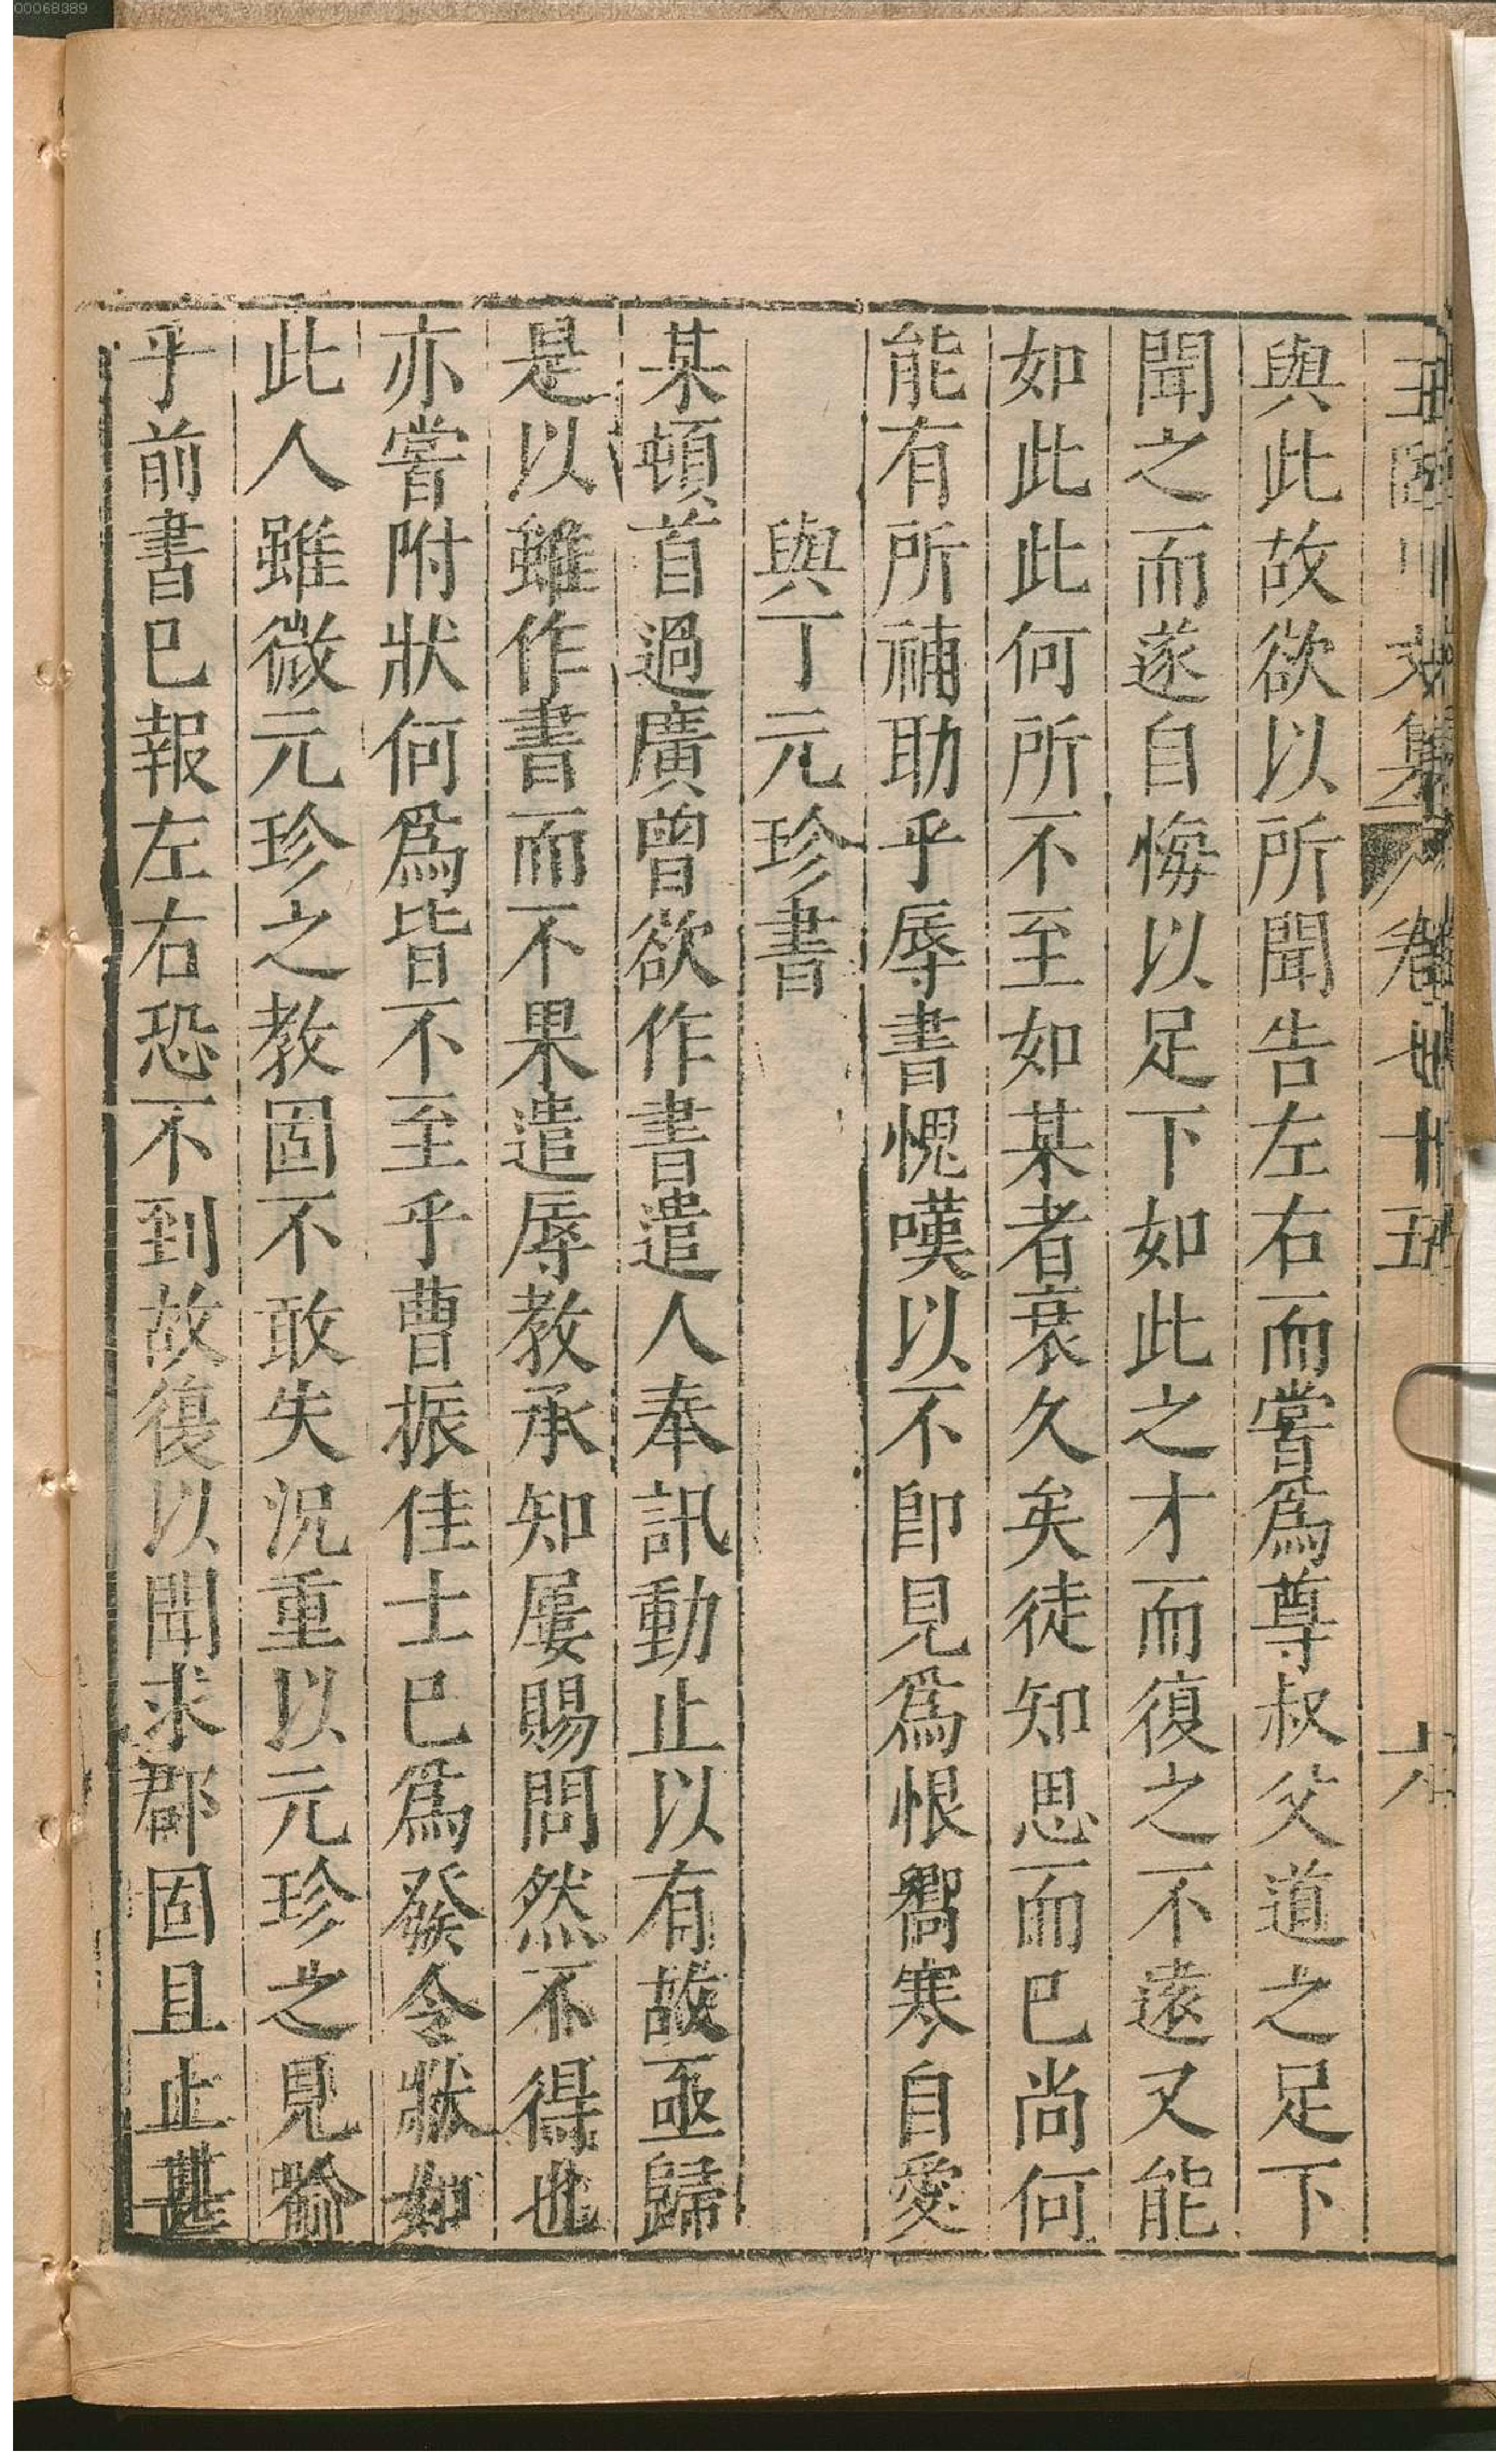 00068389
與此故欲以所聞告左右而嘗爲尊叔父道之足下
聞之而遂自悔以足下如此之才而復之不遠又能
如此此何所不至如某者衰久矣徒知思而巳尚何
能有所補助乎辱書愧嘆以不卽見爲恨嚮寒自愛
與丁元珍書
某頓首過廣曾欲作書遣人奉訊動止以有故亟歸
是以雖作書而不果遣辱教承知屢賜問然不得也
亦嘗附狀何爲皆不至乎曹振佳士巳爲發令狀如
此人雖微元珍之教固不敢失況重以元珍之見喻
乎前書巳報左右恐不到故復以聞求郡固且止甚